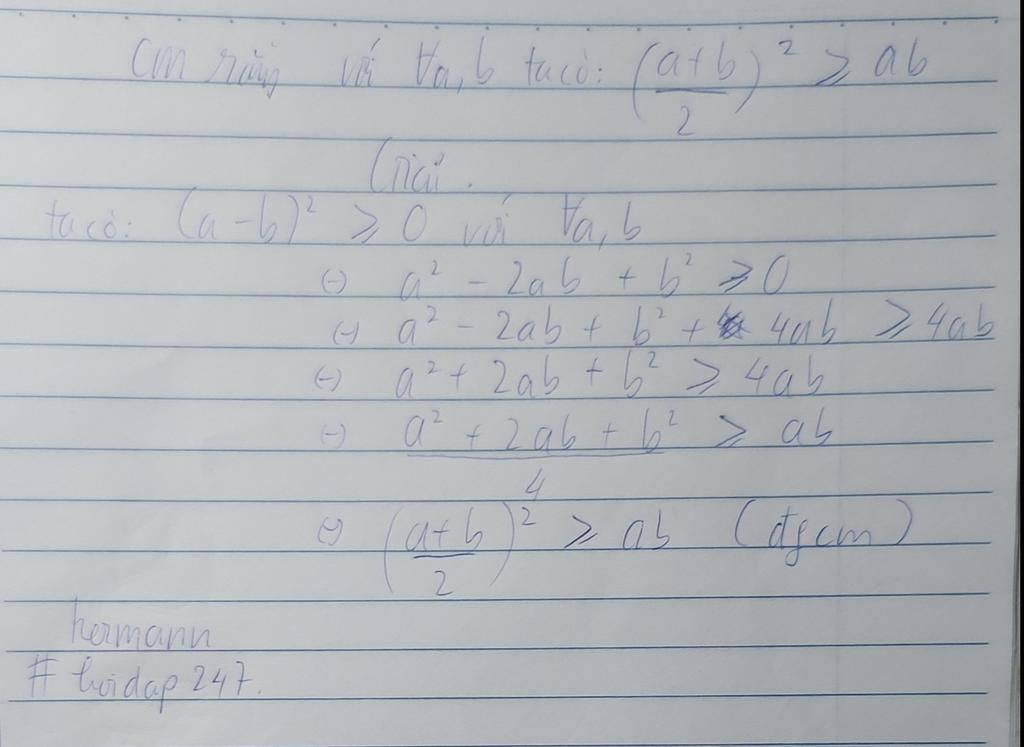 CM rằng với ∀a,b ta có: (a+b/2)² ≥ ab
Giải.
ta có: (a-b)² ≥ 0 với ∀a,b
(-) a² - 2ab + b² ≥ 0
(-) a² - 2ab + b² + 4ab ≥ 4ab
(-) a² + 2ab + b² ≥ 4ab
(-) a² + 2ab + b²/4 ≥ ab
(-) (a+b/2)² ≥ ab (đfcm)
hermann
# hoidap 247.